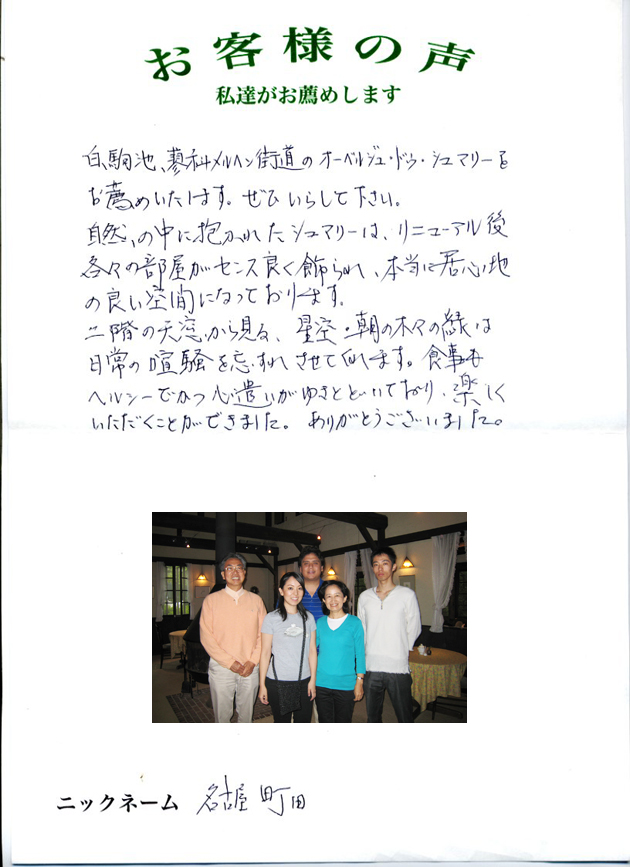 お客様の声
私達がお薦めします
白駒池、蓼科メルヘン街道のオーベルジュ・ドゥ・シュマリーを
お薦めいたします。ぜひいらして下さい。
自然の中に抱かれたシュマリーは、リニューアル後
各々の部屋がセンス良く飾られ、本当に居心地
の良い空間になっております。
二階の天窓から見る、星空・朝の木々の緑は
日常の喧騒を忘れさせて呉れます。食事も
ヘルシーでかつ心遣いがゆきとどいており、楽しく
いただくことができました。ありがとうございました。
ニックネーム 名古屋 町田